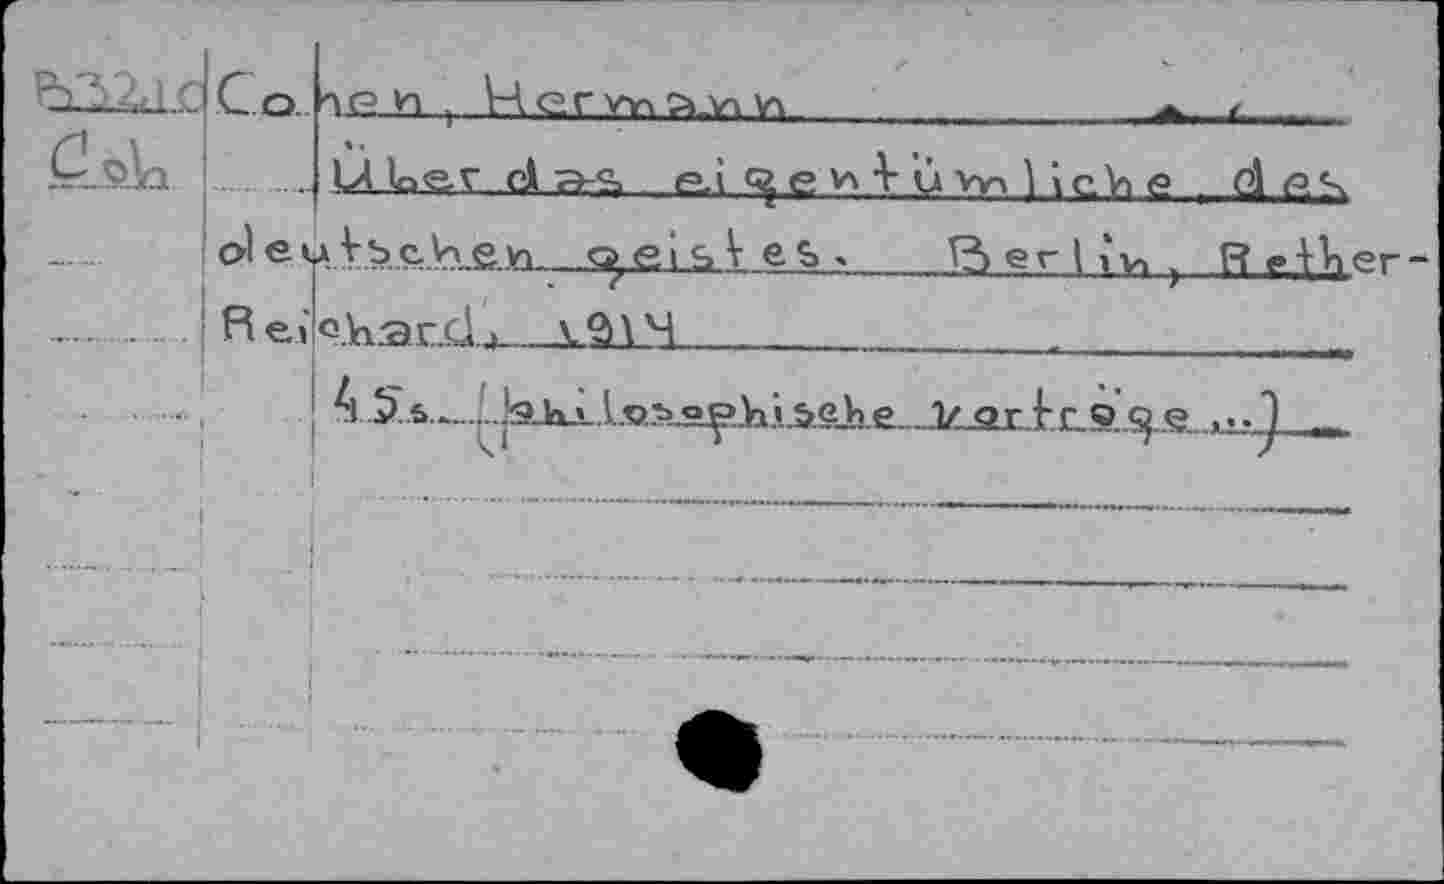 B32dc Cohen, Hermann
Coh Über das eigentümliche des
deutschen geistes. Berlin, Rether-
Reichard, 1914
45s. (philosophische Vorträge ...)